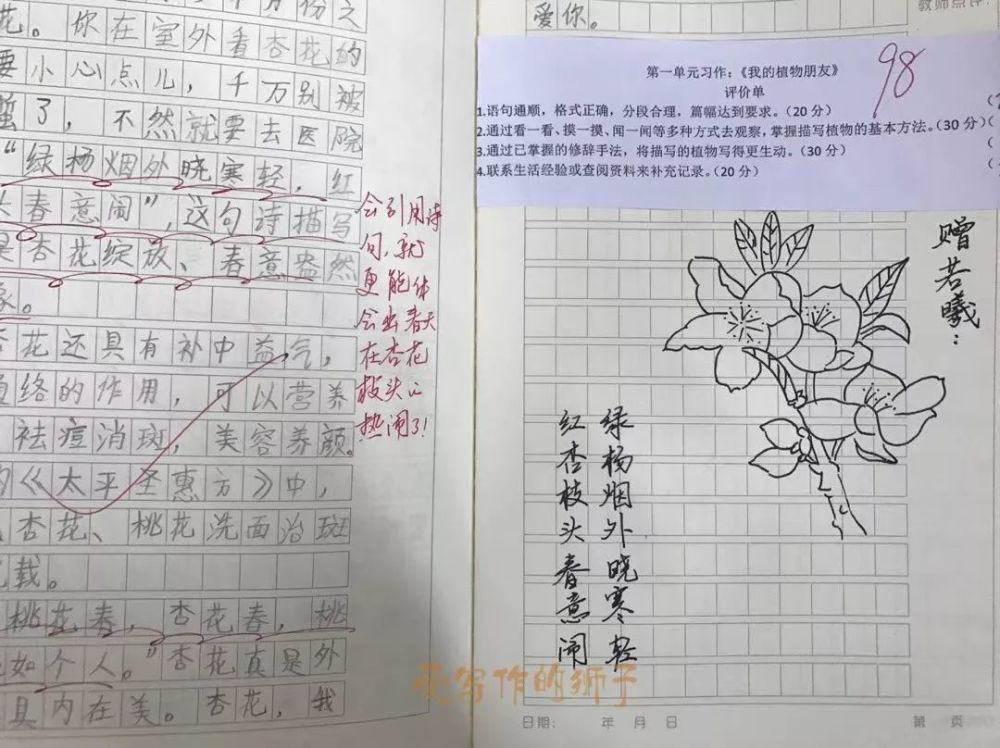 花。你在室外看杏花的
要小心点儿，千万别被
了，不然就要去医院
“绿杨烟外晓寒轻，红
头春意闹”，这句诗描写
是杏花绽放、春意盎然
象。
杏花还具有补中益气，
络的作用，可以营养
祛痘消斑，美容养颜。
的《太平圣惠方》中，
杏花、桃花洗面治斑
载。
桃花春，杏花春，桃
如个人。”杏花真是外
具内在美。杏花，我
会引用诗
句，就
更能体
会出春天
在杏花
枝头的
热闹了！
爱你。
教师点评：
第一单元习作：《我的植物朋友》
评价单
98
1.语句通顺，格式正确，分段合理，篇幅达到要求。（20 分）
2.通过看一看、摸一摸、闻一闻等多种方式去观察，掌握描写植物的基本方法。（30 分）
3.通过已掌握的修辞手法，将描写的植物写得更生动。（30 分）
4.联系生活经验或查阅资料来补充记录。（20 分）
赠若曦：
绿杨烟外晓寒轻
红杏枝头春意闹
爱写作的狮子
日期： 年 月 日
第 页